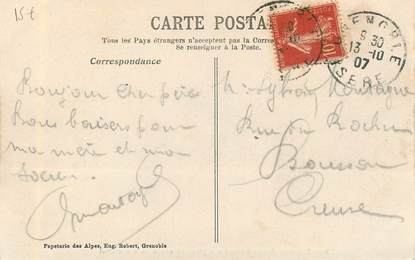 15t
CARTE POSTALE
Tous les Pays étrangers n'acceptent pas la Corres
Se renseigner à la Poste.
Correspondance
GRENOBLE
9 30
13 - 10
07
ISERE
10
Bonjour cher père
Bons baisers pour
ma mère et ma
soeur.
Mr Sylvain Montagne
Rue du Rocher
Creuse
Papeterie des Alpes, Eug. Robert, Grenoble